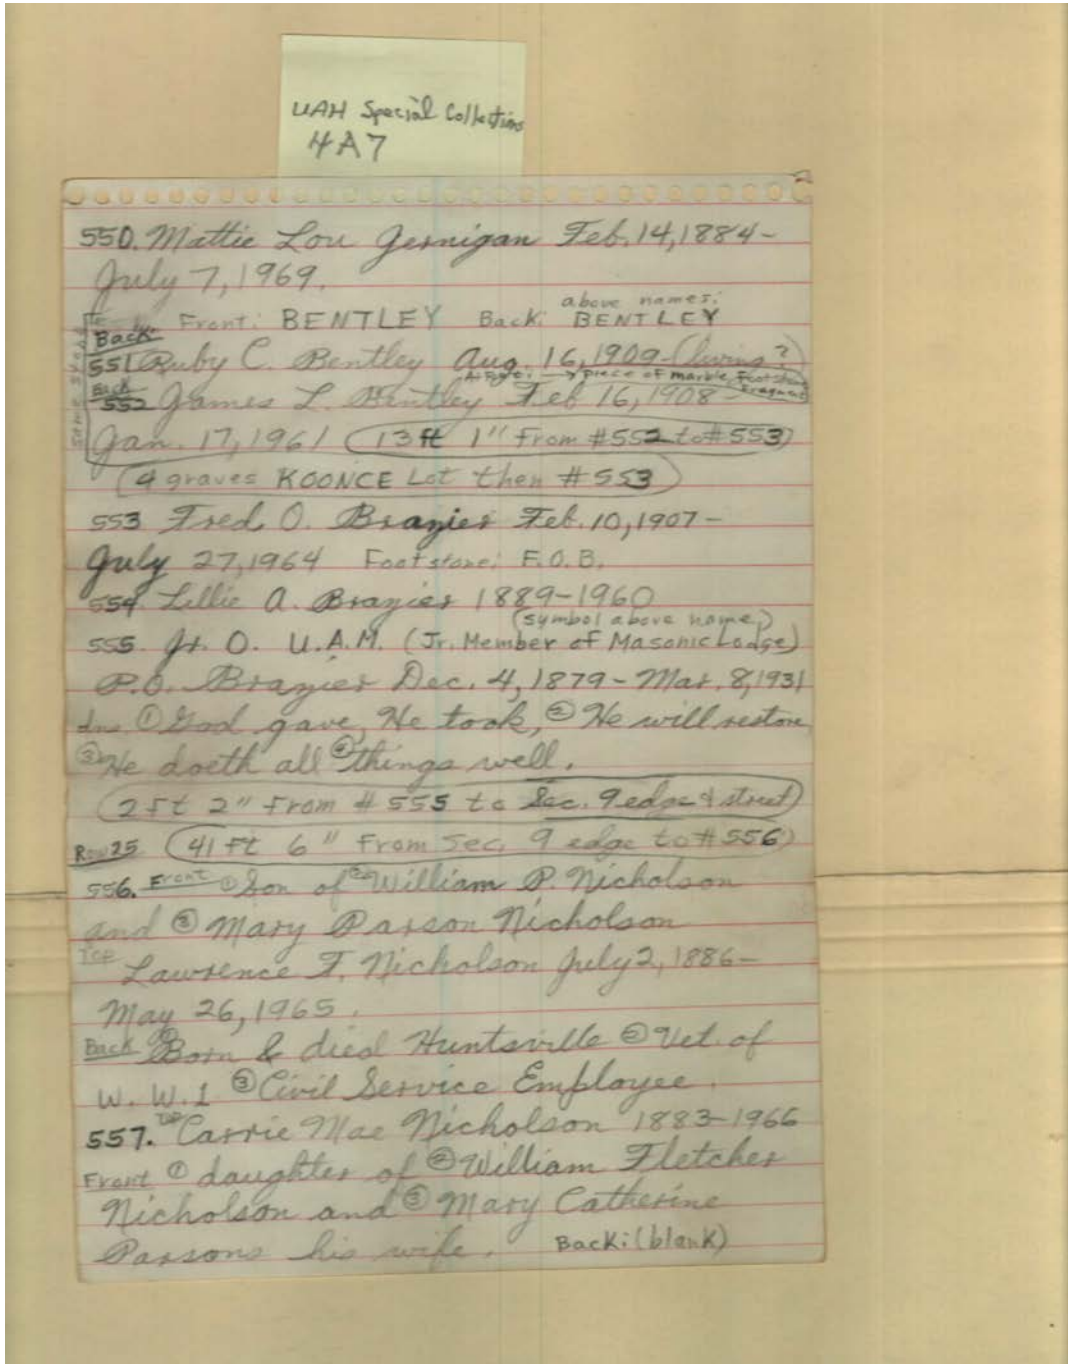 UAH Special Collections
4A7
550. Mattie Lou Jernigan Feb. 14, 1884-
July 7, 1969.
above names:
Front: BENTLEY Back: BENTLEY
Back:
551 Ruby C. Bentley Aug. 16, 1909-(living?)
At Foot: → piece of marble, Footstone Fragment
Back
552 James L. Bentley Feb 16, 1908-
Jan. 17, 1961 (13 ft 1" From #552 to #553)
(4 graves KOONCE Lot then #553)
553 Fred O. Brazier Feb. 10, 1907-
July 27, 1964 Footstone: F.O.B.
554. Lillie A. Brazier 1889-1960
(symbol above name)
555. Jr. O. U.A.M. (Jr. Member of Masonic Lodge)
P.O. Brazier Dec. 4, 1879- Mar. 8, 1931
Ins. ① God gave, He took, ② He will restore,
③ He doeth all ④ things well.
(2 Ft 2" From #555 to Sec. 9 edge & street)
Row 25 (41 Ft 6" From Sec. 9 edge to #556)
556. Front ① Son of ② William P. Nicholson
and ③ Mary Parson Nicholson
TOP
Lawrence T. Nicholson July 2, 1886-
May 26, 1965.
Back ① Born & died Huntsville ② Vet. of
W.W.1 ③ Civil Service Employee.
557. TOP Carrie Mae Nicholson 1883-1966
Front ① daughter of ② William Fletcher
Nicholson and ③ Mary Catherine
Parsons his wife. Back: (blank)